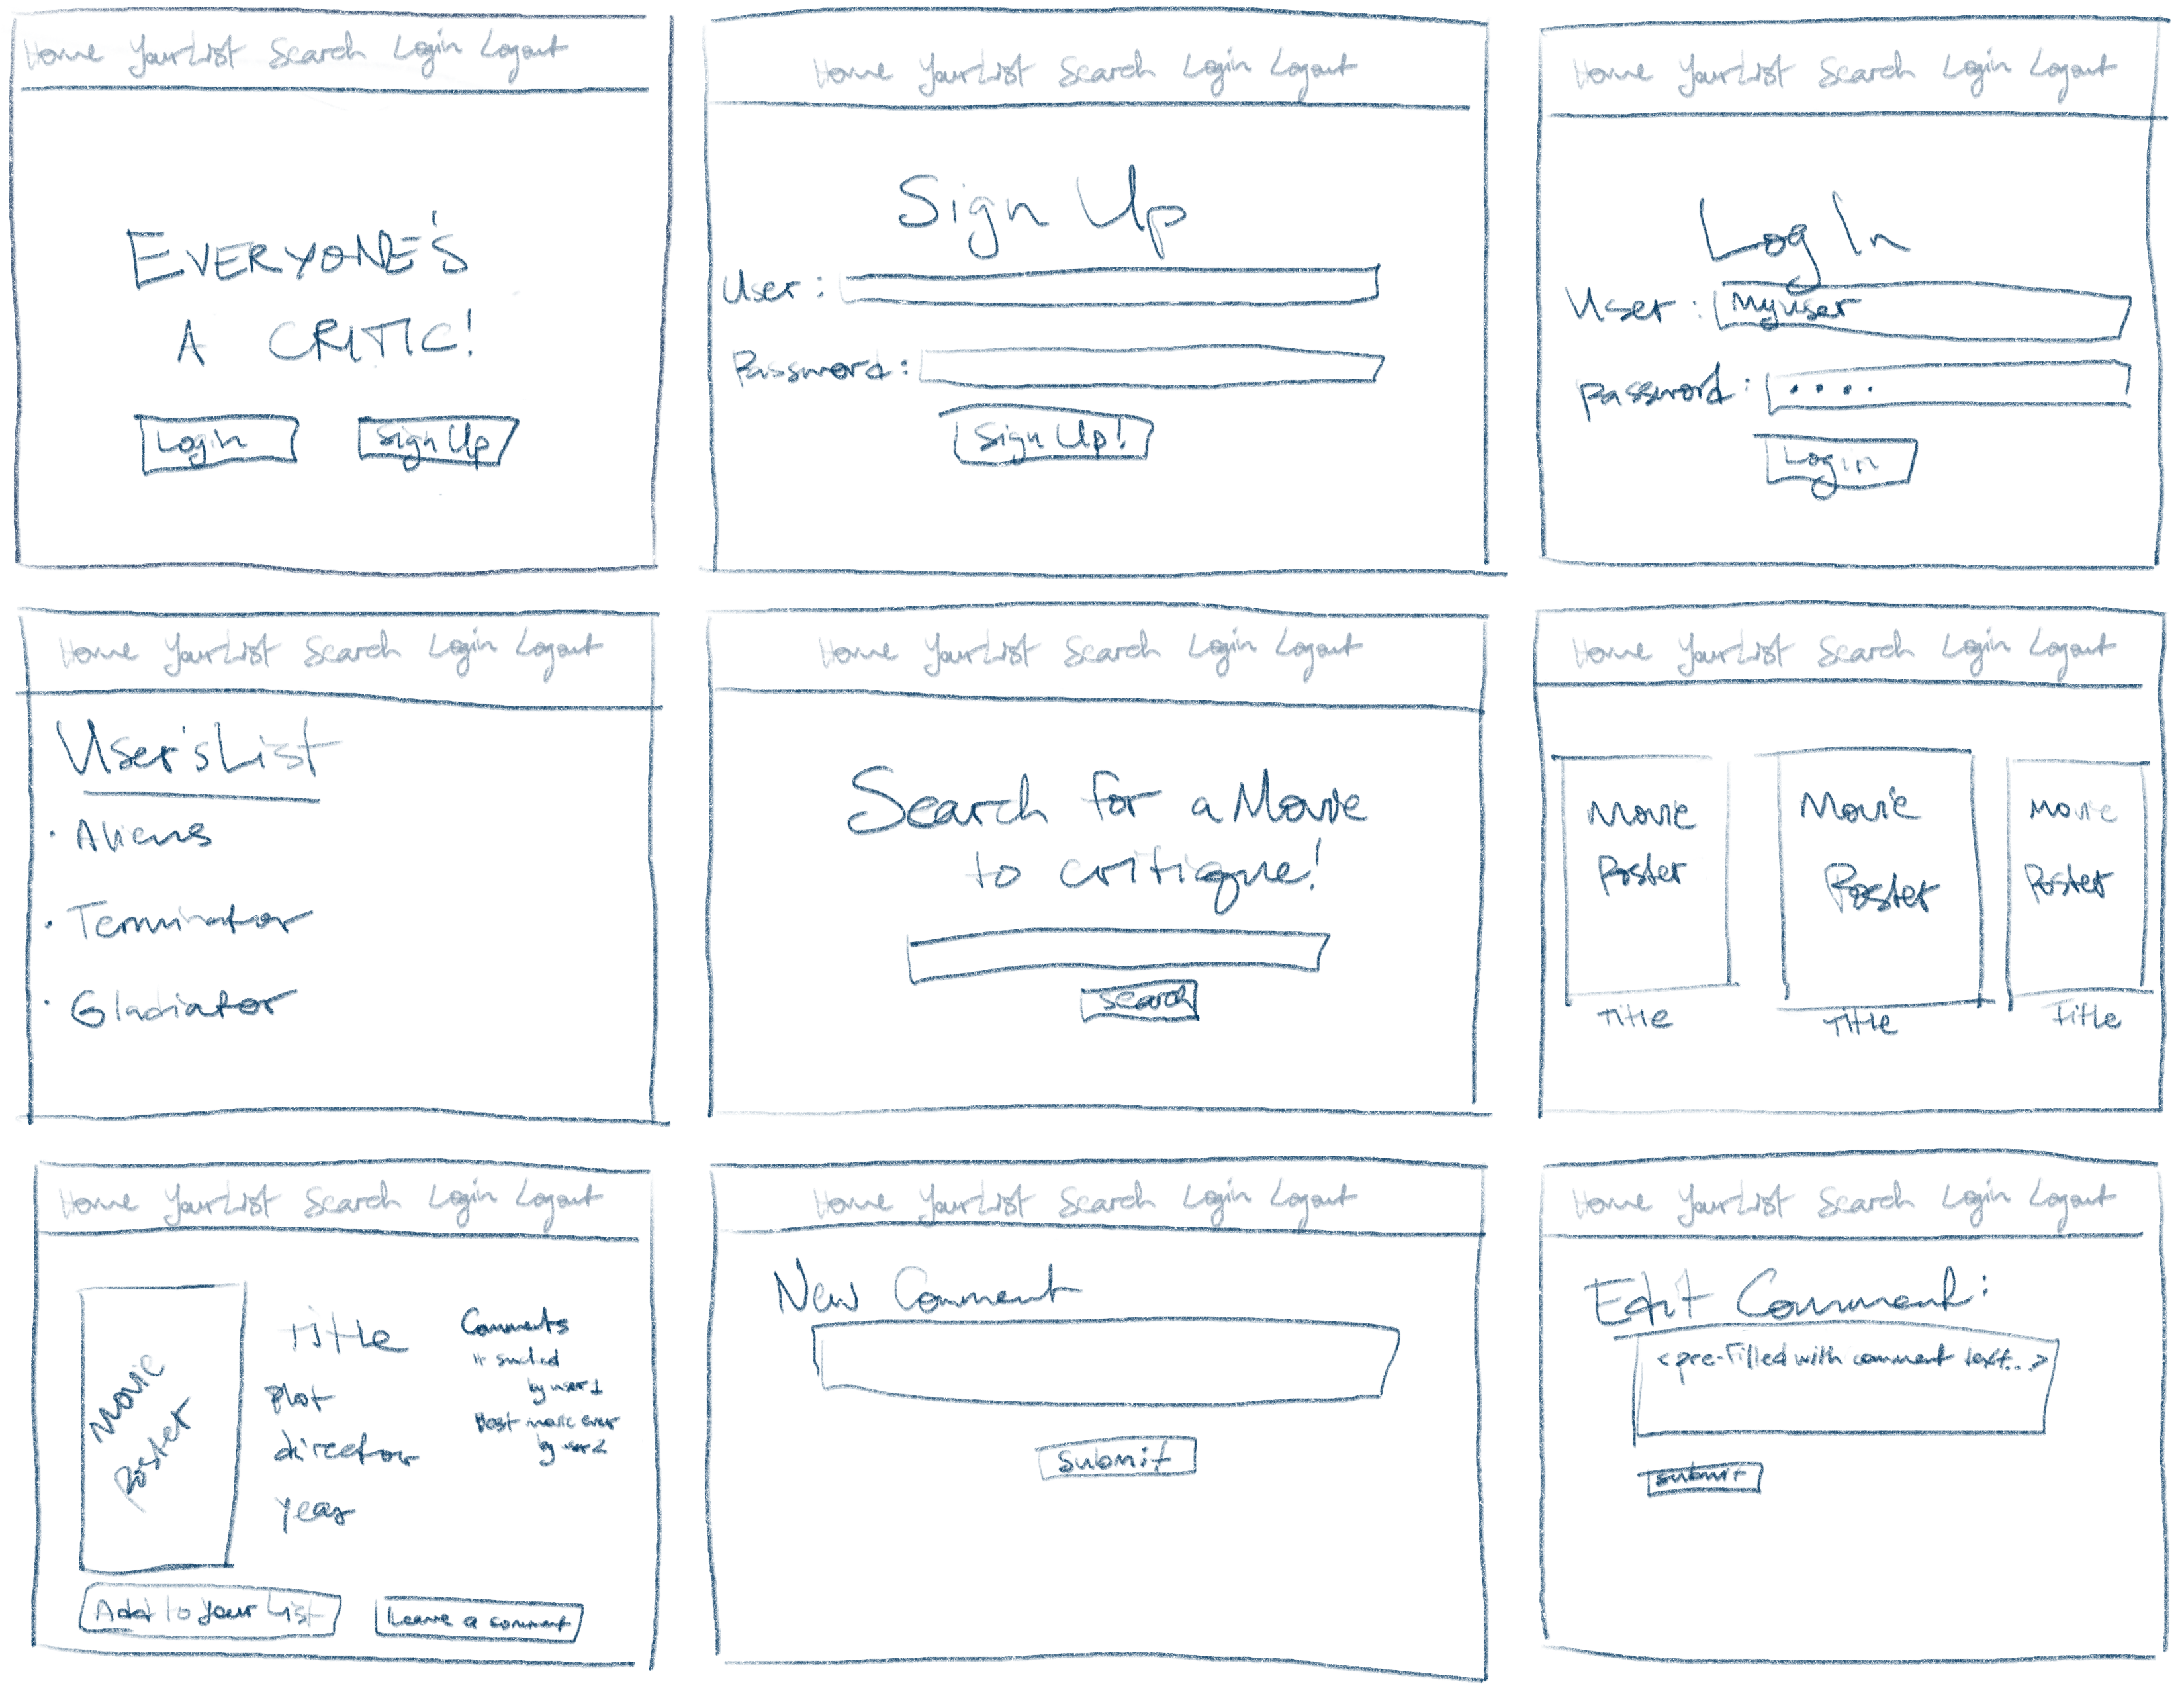 Home Your List Search Login Logout
EVERYONE'S
A CRITIC!
Login Sign Up
Home Your List Search Login Logout
Sign Up
User:
Password:
Sign Up!
Home Your List Search Login Logout
Log In
User: Myuser
Password: ....
Login
Home Your List Search Login Logout
User's List
· Aliens
· Terminator
· Gladiator
Home Your List Search Login Logout
Search for a Movie
to critique!
Search
Home Your List Search Login Logout
Movie
Poster
Title
Movie
Poster
Title
Movie
Poster
Title
Home Your List Search Login Logout
Movie
Poster
Title
plot
director
year
Comments
It sucked
by user1
Best movie ever
by user2
Add to Your List
Leave a comment
Home Your List Search Login Logout
New Comment
Submit
Home Your List Search Login Logout
Edit Comment:
<pre-filled with comment text..>
submit